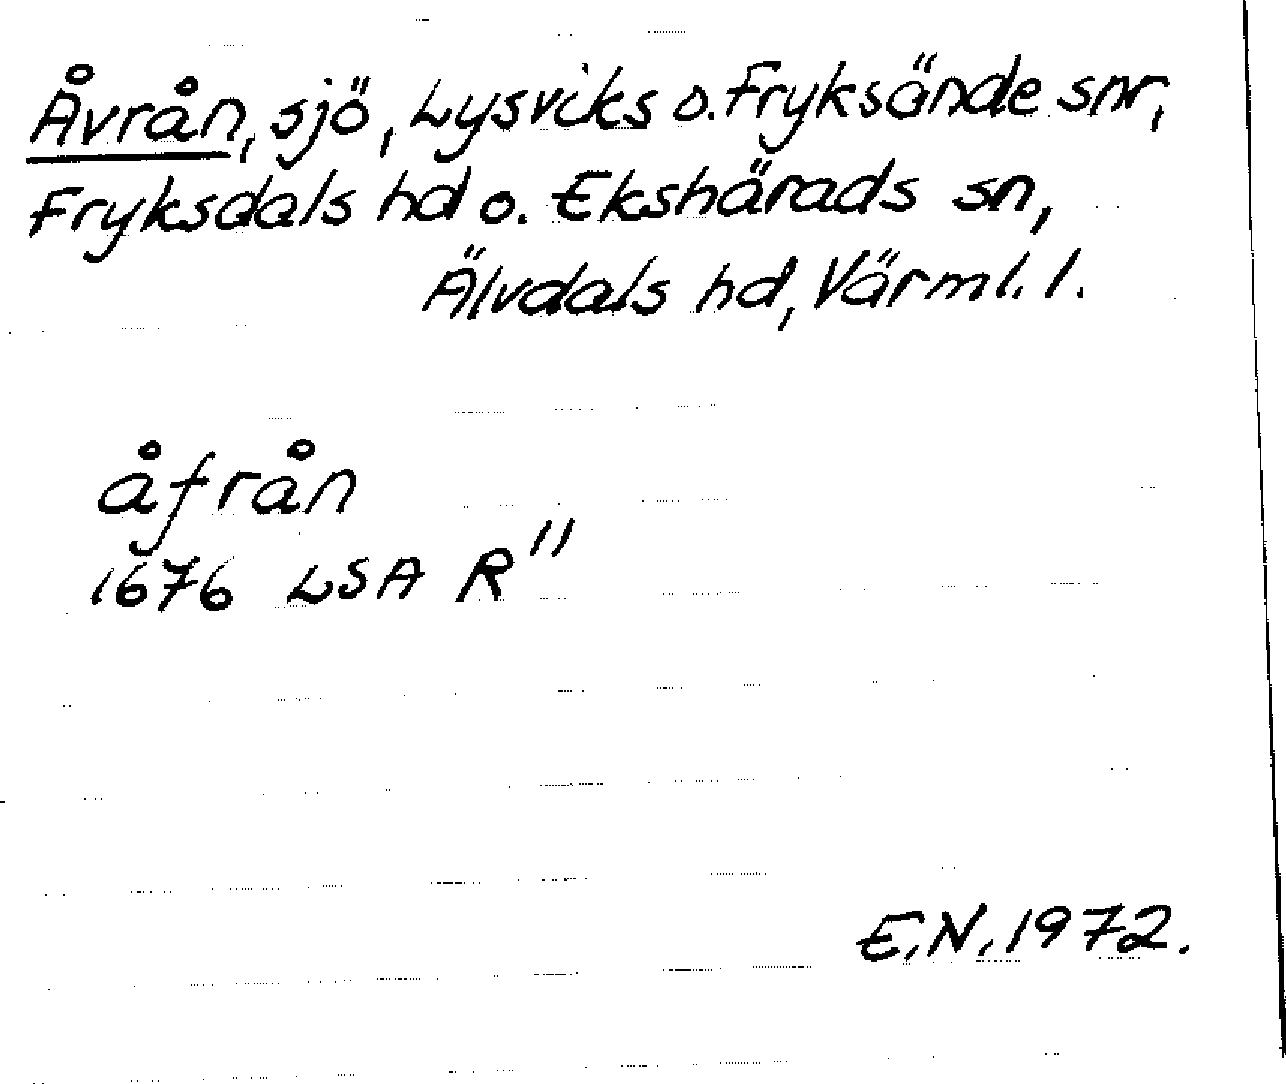 Åvrån, sjö, Lysviks o. Fryksände snr,
Fryksdals hd o. Ekshärads sn,
Älvdals hd, Värml. l.
åfrån
1676 LSA R"
E.N. 1972.